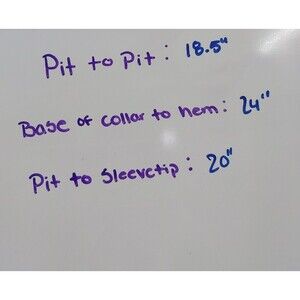 Pit to Pit: 18.5"
Base of collar to hem: 24"
Pit to Sleevetip: 20"